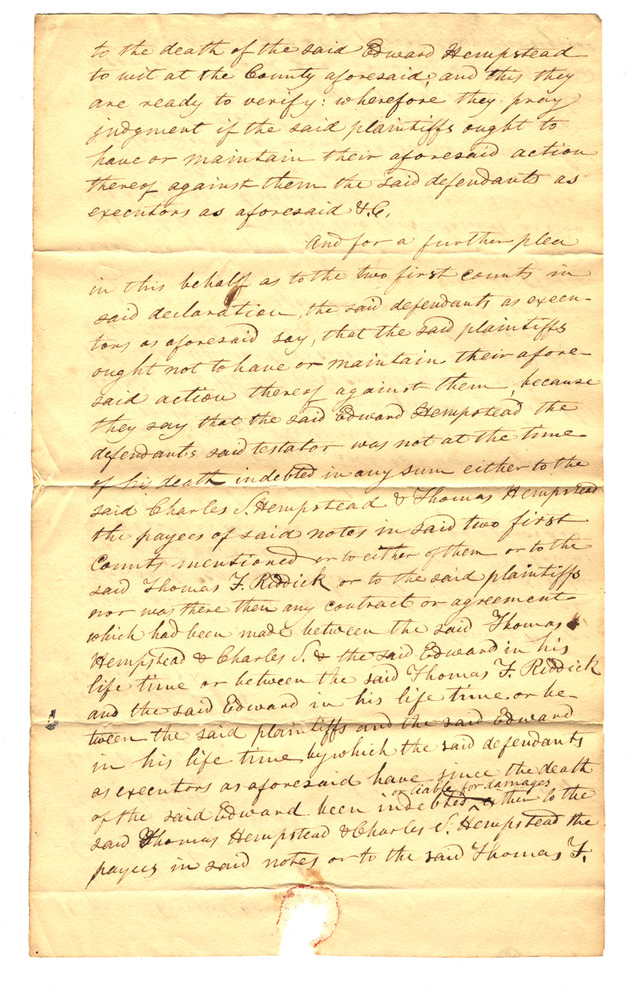 to the death of the said Edward Hempstead
to wit at the County aforesaid; and this they
are ready to verify: wherefore they pray
judgment if the said plaintiffs ought to
have or maintain their aforesaid action
thereof against them the said defendants as
executors as aforesaid &.C.
And for a further plea
in this behalf as to the two first counts in
said declaration, the said defendants as execu-
tors as aforesaid say, that the said plaintiffs
ought not to have or maintain their afore-
said action thereof against them, because
they say that the said Edward Hempstead the
defendants said testator was not at the time
of his death indebted in any sum either to the
said Charles S. Hempstead & Thomas Hempstead
the payees of said notes in said two first
Counts mentioned or to either of them or to the
said Thomas F. Riddick or to the said plaintiffs
nor was there then any contract or agreement
which had been made between the said Thomas
Hempstead & Charles S. & the said Edward in his
life time or between the said Thomas F. Riddick
and the said Edward in his life time or be-
tween the said plaintiffs and the said Edward
in his life time by which the said defendants
as executors as aforesaid have since the death
or liable for damages
of the said Edward been indebted either to the
said Thomas Hempstead & Charles S. Hempstead the
payees in said notes or to the said Thomas F.